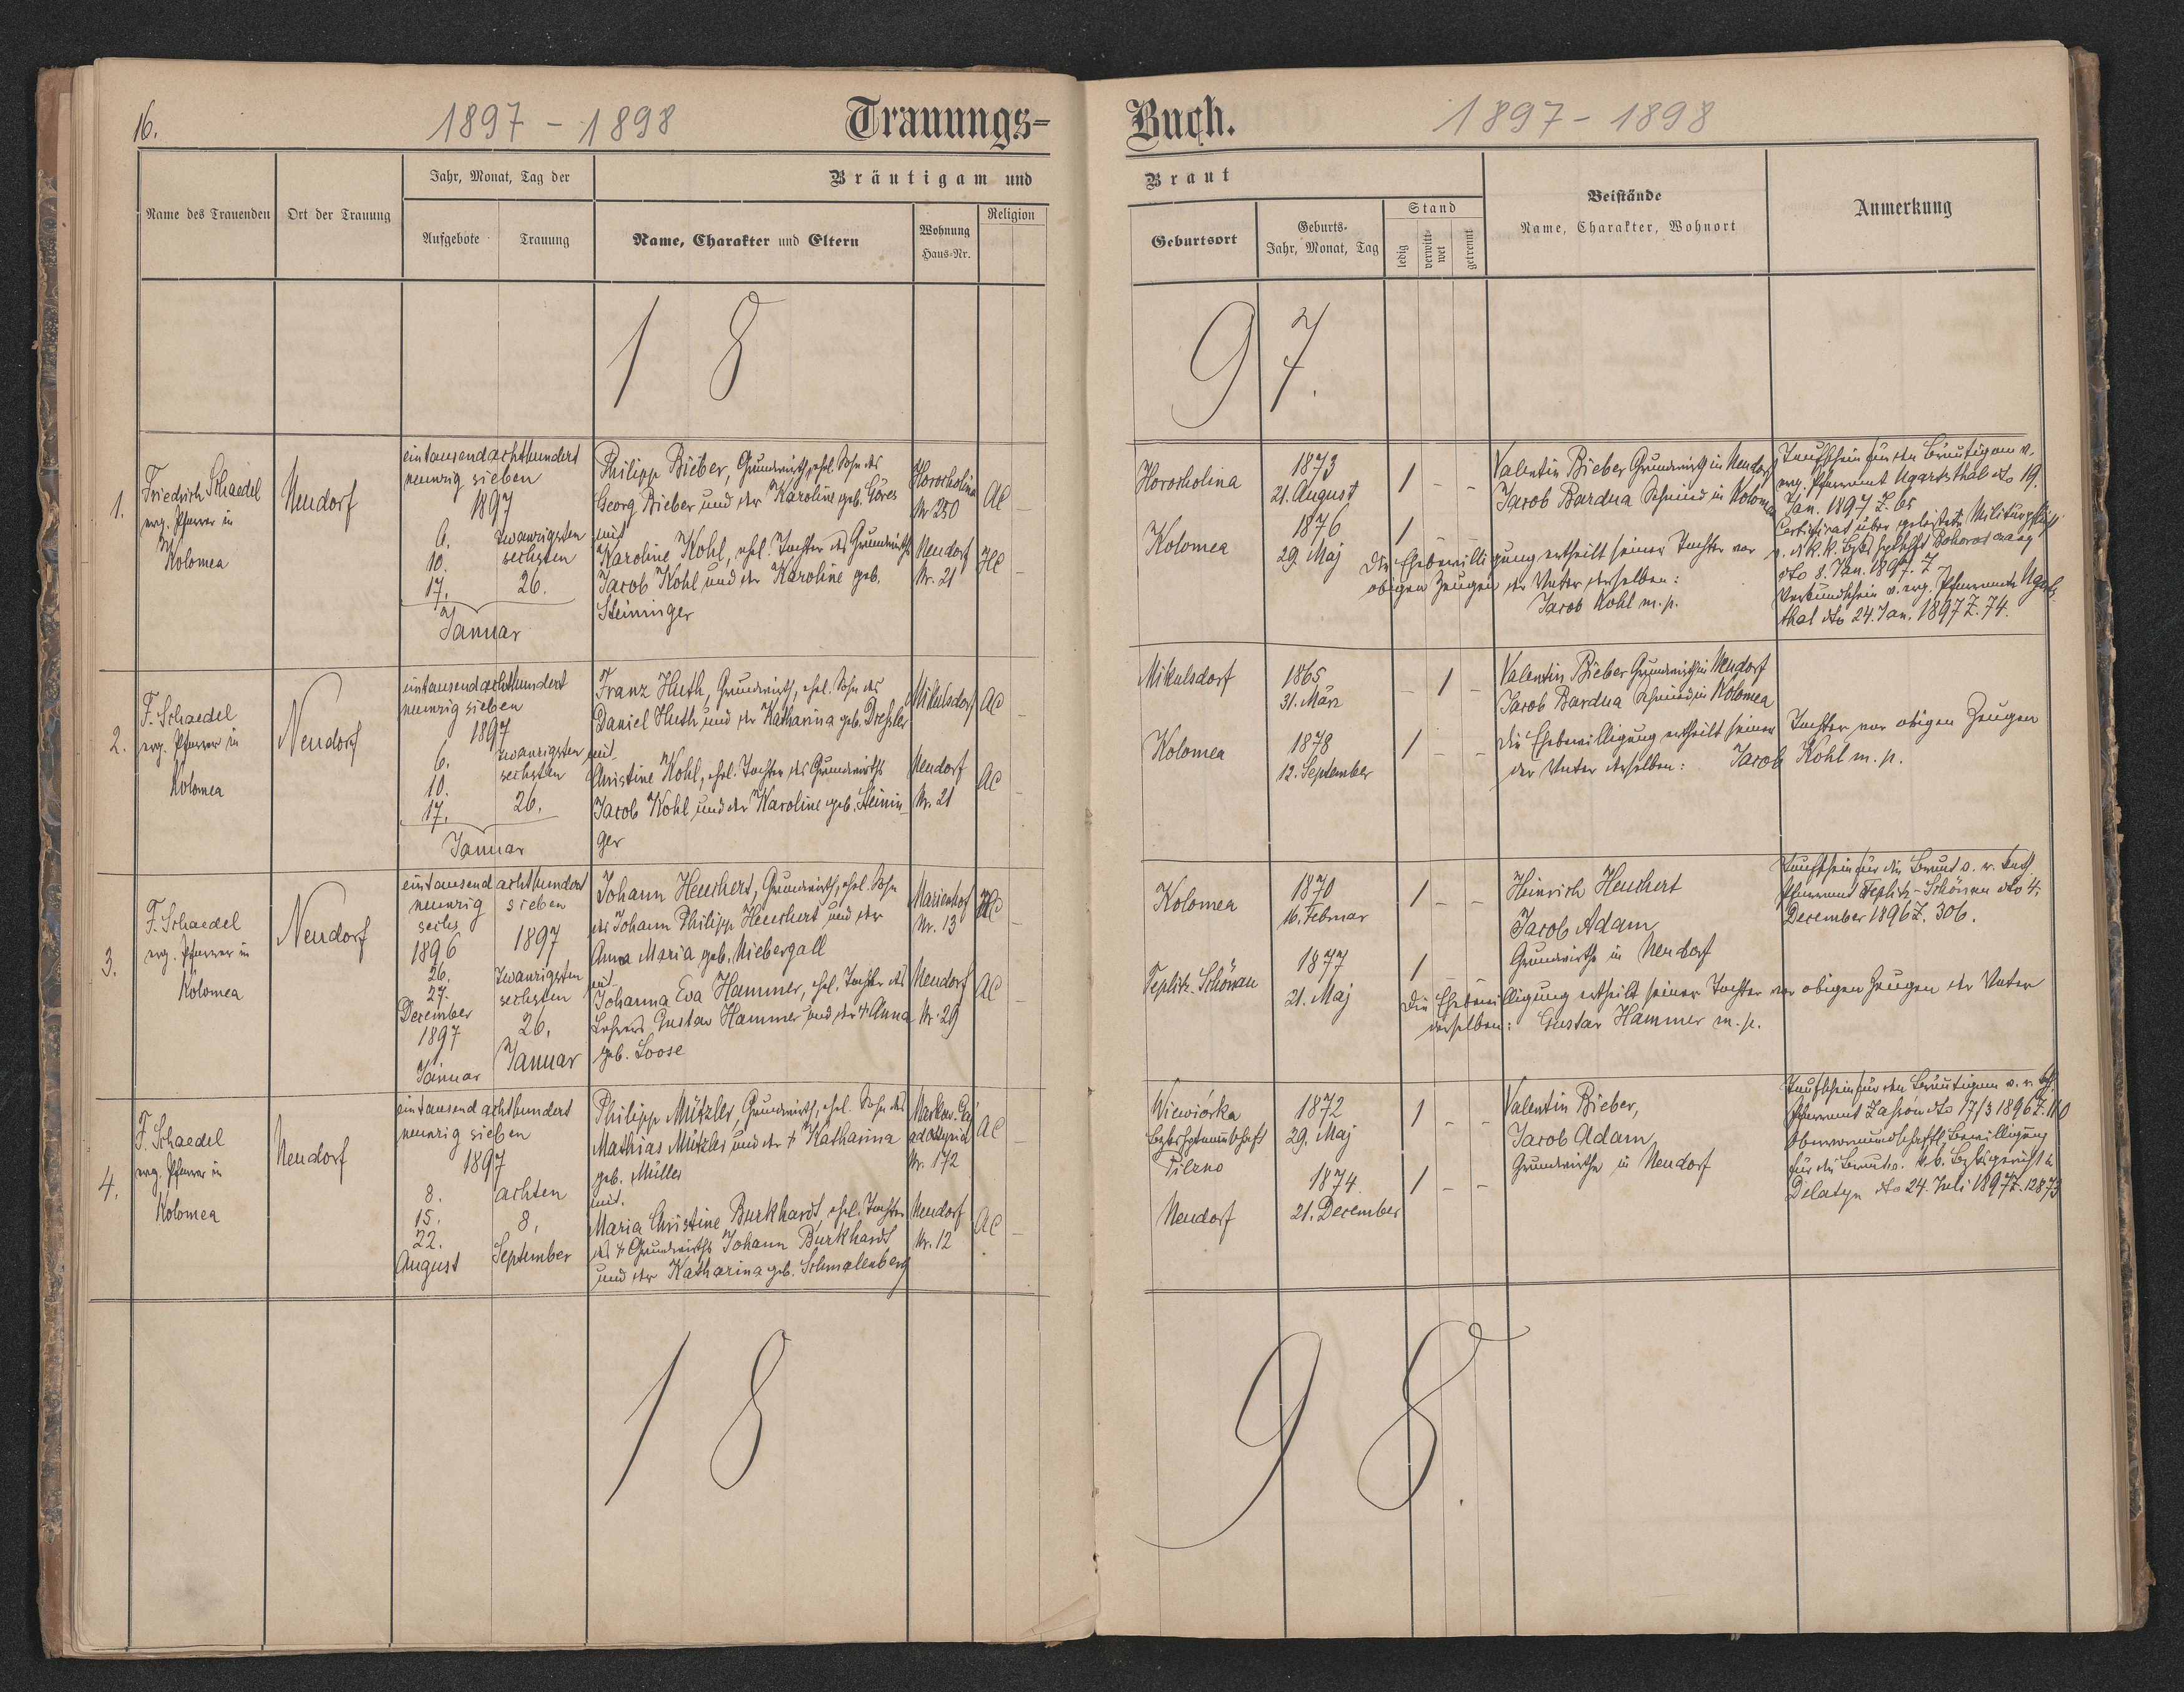 16.
1897 - 1898
Trauungs-
Buch.
1897 - 1898
Name des Trauenden
Ort der Trauung
Jahr, Monat, Tag der
Aufgebote
Trauung
Bräutigam und
Name, Charakter und Eltern
Wohnung
Haus-Nr.
Religion
Braut
Geburtsort
Geburts-
Jahr, Monat, Tag
Stand
ledig
verwitt-
wet
getrennt
Beistände
Name, Charakter, Wohnort
Anmerkung
1 8
9 7.
1.
Friedrich Schaedel
evg. Pfarrer in
Kolomea
Neudorf
eintausendachthundert
neunzig sieben
1897
6.
10.
17.
zwanzigsten
sechsten
26.
Januar
Philipp Bieber, Grundwirth, ehel. Sohn des
Georg Bieber und der Karoline geb. Göres
mit
Karoline Kohl, ehel. Tochter des Grundwirths
Jacob Kohl und der Karoline geb.
Steininger
Horocholina
Nr. 250
Neudorf
Nr. 21
AC –
HC –
Horocholina
1873
21. August
1 – –
Kolomea
1876
29. Maj
1
Valentin Bieber Grundwirth in Neudorf
Jacob Bardua Schmied in Kolomea
Die Ehebewilligung ertheilt seiner Tochter vor
obigen Zeugen der Vater derselben:
Jacob Kohl m. p.
Taufschein für den Bräutigam v.
evg. Pfarramt Ugartsthal dto 19.
Jan. 1897 Z. 65
Certificat über geleistete Militärpflicht
v. d. k. k.
dto 8. Jan. 1897. Z –
Verkündschein v. evg. Pfarramte Ugarts-
thal dto 24. Jan. 1897 Z. 74.
2.
F. Schaedel
evg. Pfarrer in
Kolomea
Neudorf
eintausendachthundert
neunzig sieben
1897
6.
10.
17.
zwanzigsten
sechsten
26.
Januar
Franz Huth, Grundwirth, ehel. Sohn des
Daniel Huth und der Katharina geb. Dressler
mit
Christine Kohl, ehel. Tochter des Grundwirths
Jacob Kohl und der Karoline geb. Steinin-
ger
Mikulsdorf
Neudorf
Nr. 21
AC
AC –
Mikulsdorf
1865
31. März
– 1 –
Kolomea
1878
12. September
1 – –
Valentin Bieber Grundwirth in Neudorf
Jacob Bardua Schmied in Kolomea
Die Ehebewilligung ertheilt seiner Tochter vor obigen Zeugen
der Vater derselben: Jacob Kohl m. p.
3.
F. Schaedel
evg. Pfarrer in
Kolomea
Neudorf
eintausend achthundert
neunzig sieben
sechs
1896
26.
27.
December
1897
1.
Januar
1897
zwanzigsten
sechsten
26.
Januar
Johann Heuchert, Grundwirth, ehel. Sohn
des Johann Philipp Heuchert und der
Anna Maria geb. Niebergall
mit
Johanna Eva Hammer, ehel. Tochter des
Lehrers Gustav Hammer und der † Anna
geb. Loose
Mariendorf
Nr. 13
Neudorf
Nr. 29
HC –
AC –
Kolomea
1870
16. Februar
1 – –
Teplitz-Schönau
1877
21. Maj
1
Heinrich Heuchert
Jacob Adam
Grundwirthe in Neudorf
Die Ehebewilligung ertheilt seiner Tochter vor obigen Zeugen der Vater
derselben: Gustav Hammer m. p.
Taufschein für die Braut v.
Pfarramt Teplitz-Schönau dto 4.
December 1896 Z. 306.
4.
F. Schaedel
evg. Pfarrer in
Kolomea
Neudorf
eintausend achthundert
neunzig sieben
1897
8.
15.
22.
August
achten
8.
September
Philipp Mützler, Grundwirth, ehel. Sohn des
Mathias Mützler und der † Katharina
geb. Müller
mit
Maria Christine Burkhardt, ehel. Tochter
des † Grundwirths Johann Burkhardt
und der Katharina geb. Schmalenberg
Nr. 172
Neudorf
Nr. 12
AC –
AC –
Wiewiórka
Pilzno
1872
29. Maj
1 – –
Neudorf
1874
21. December
1 – –
Valentin Bieber,
Jacob Adam
Grundwirthe in Neudorf
Taufschein für den Bräutigam v.
Pfarramt dto 17/3 1896 Z. 110
Obervormundschaftl. Bewilligung
für die Braut v. k. k. Bezirksgericht in
Delatyn dto 24. Juli 1897 Z. 12873
1 8
9 8.